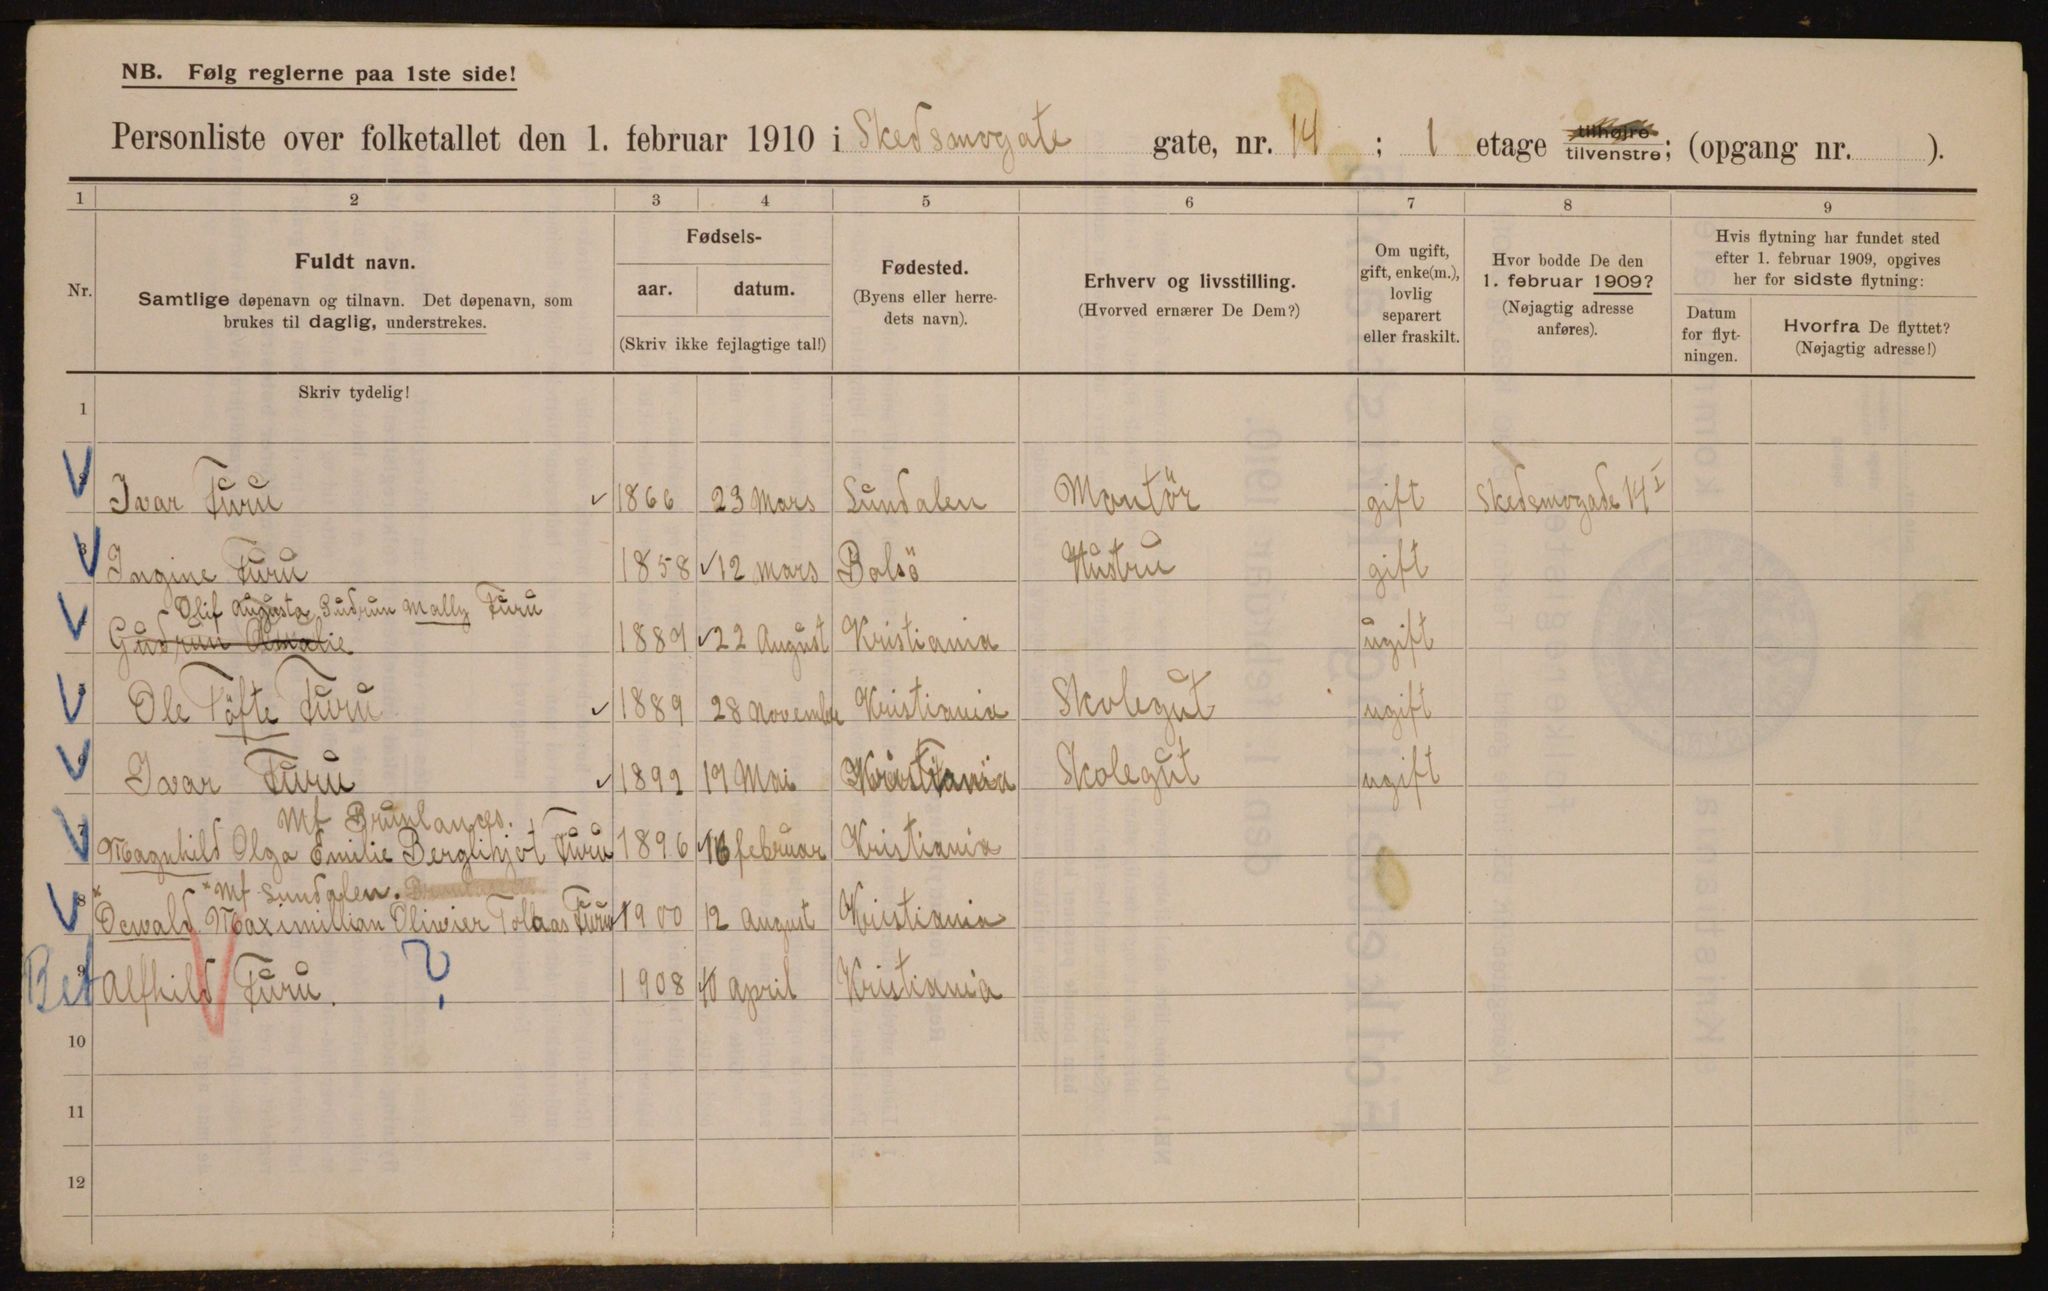 NB. Følg reglerne paa 1ste side!
Personliste over folketallet den 1. februar 1910 i Skedsmogate gate, nr. 14 ; 1 etage tilhøjre tilvenstre; (opgang nr. ).
1 2 3 4 5 6 7 8 9
Nr.
Fuldt navn.
Samtlige døpenavn og tilnavn. Det døpenavn, som
brukes til daglig, understrekes.
Fødsels-
aar. datum.
(Skriv ikke fejlagtige tal!)
Fødested.
(Byens eller herre-
dets navn).
Erhverv og livsstilling.
(Hvorved ernærer De Dem?)
Om ugift,
gift, enke(m.),
lovlig
separert
eller fraskilt.
Hvor bodde De den
1. februar 1909?
(Nøjagtig adresse
anføres).
Hvis flytning har fundet sted
efter 1. februar 1909, opgives
her for sidste flytning:
Datum
for flyt-
ningen.
Hvorfra De flyttet?
(Nøjagtig adresse!)
Skriv tydelig!
1
Ivar Furu 1866 23 Mars Sundalen Montör gift Skedsmogade 14 I
Ingine Furu 1858 12 mars Bolsö Hustru gift
Olif Augusta Gudrun Mally Furu
Gudrun Amalie 1889 22 August Kristiania ugift
Ole Töfte Furu 1889 28 November Kristiania Skolegut ugift
Ivar Furu 1892 19 Mai Kristiania Skolegut ugift
Mf Brunlanæs.
7 Magnhild Olga Emilie Berglihjot Furu 1896 16 februar Kristiania
* Mf Sundalen.
8 Oswald Maximillian Olivier Tollaas Furu 1900 12 August Kristiania
Bet 9 Alfhild Furu. ? 1908 10 April Kristiania
10
11
12